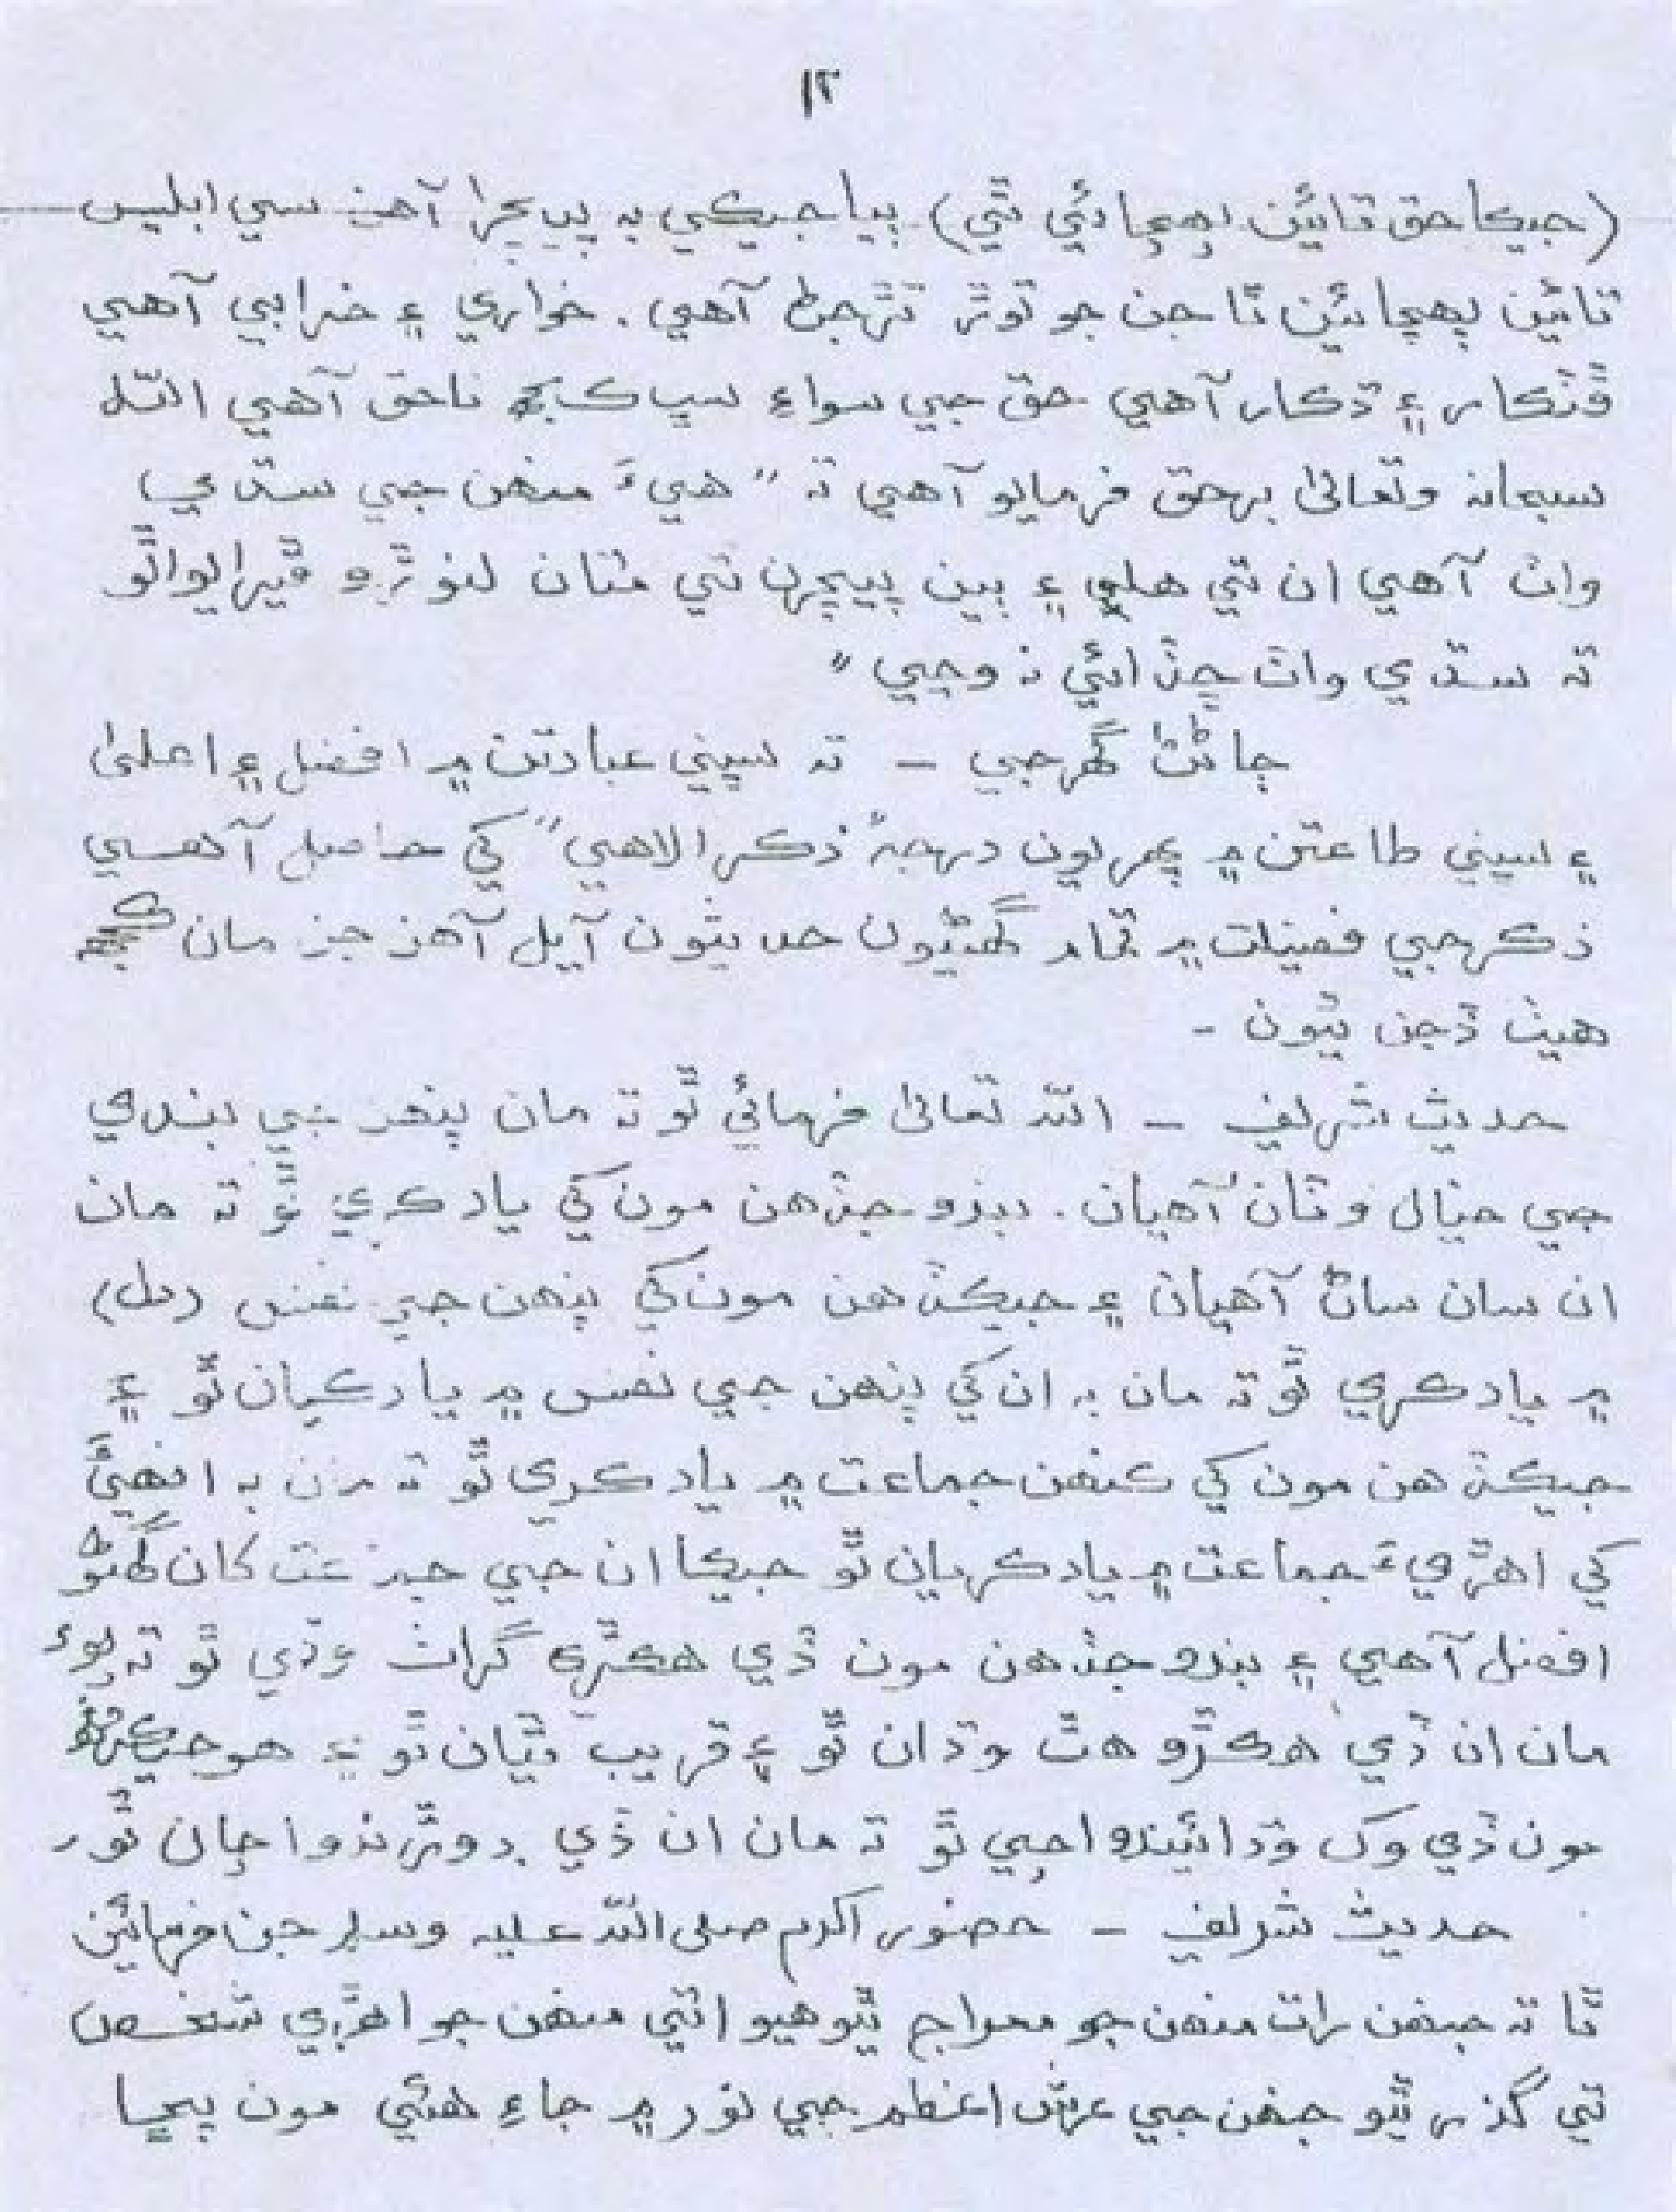 ١٢
(جيڪا حق تائين پهچائي ٿي) ٻيا جيڪي به پيچرا آهن سي ابليس
تائين پهچائين ٿا جن جو توڙ ترجط آهي. خواري ۽ خرابي آهي
ڦٽڪار ۽ ڌڪار آهي حق جي سواءِ سڀ ڪجهه ناحق آهي الله
سبحانه وتعاليٰ برحق فرمايو آهي ته " هيءَ منهن جي سڌي
واٽ آهي ان تي هلو ۽ ٻين پيچرن تي متان لنوڙيو ڦيرايوا ٿو
ته سڌي واٽ ڇڏائي نه وڃي "
ڄاڻڻ گهرجي – ته سڀني عبادتن ۾ افضل ۽ اعليٰ
۽ سڀني طاعتن ۾ ڀريون درجه ذڪر الاهي" کي حاصل آهي
ذڪر جي فضيلت ۾ تمام گهڻيون حديثون آيل آهن جن مان
هيٺ ڏجن ٿيون –
حديث شريف – الله تعاليٰ فرمائي ٿو ته مان پنهن جي بندي
جي خيال وٽان آهيان. بندو جڏهن مون کي ياد ڪري ٿو ته مان
ان سان ساڻ آهيان ۽ جيڪڏهن مون کي پنهن جي نفس (دل)
۾ ياد ڪري ٿو ته مان به ان کي پنهن جي نفس ۾ ياد ڪيان ٿو ۽
جيڪڏهن مون کي ڪنهن جماعت ۾ ياد ڪري ٿو ته مان به انهيءَ
کي اهڙي جماعت ۾ ياد ڪريان ٿو جيڪا ان جي جماعت کان گهڻو
افضل آهي ۽ بندو جڏهن مون ڏي هڪڙي گرانٺ وڌي ٿو ته پوءِ
مان ان ڏي هڪڙو هٿ وڌان ٿو ۽ قريب ٿيان ٿو ۽ هو جيڪڏهن
مون ڏي وک وڌائيندو اچي ٿو ته مان ان ڏي ڊوڙندو اچان ٿو ر
حديث شريف – حضور اڪرم صلى الله عليه وسلم جن فرمائين
ٿا ته جنهن رات منهن جو معراج ٿيو هيو اتي منهن جو اهڙي شخص
تي گذر ٿيو جنهن جي عرش اعظم جي نور ۾ جاءِ هئي مون پڇيا